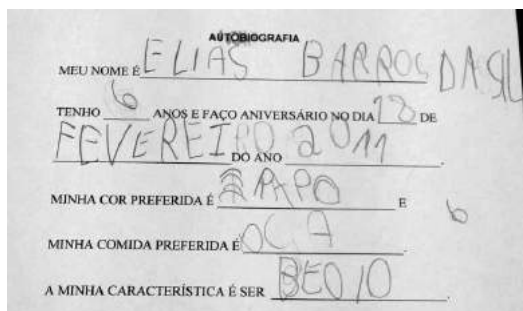 AUTOBIOGRAFIA
MEU NOME É ELIAS BARROS DA SIL
TENHO 6 ANOS E FAÇO ANIVERSÁRIO NO DIA 18 DE
FEVEREIRO DO ANO 2011.
MINHA COR PREFERIDA É E 6
MINHA COMIDA PREFERIDA É.
A MINHA CARACTERÍSTICA É SER